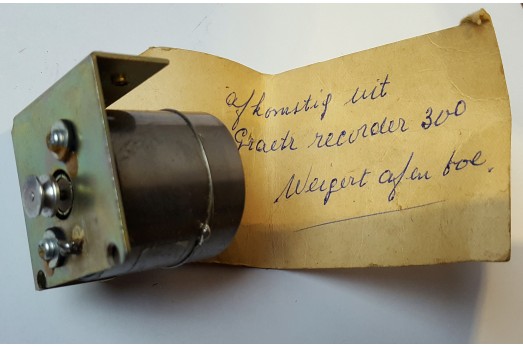 afkomstig uit
Graetz recorder 300
Weigert af en toe.